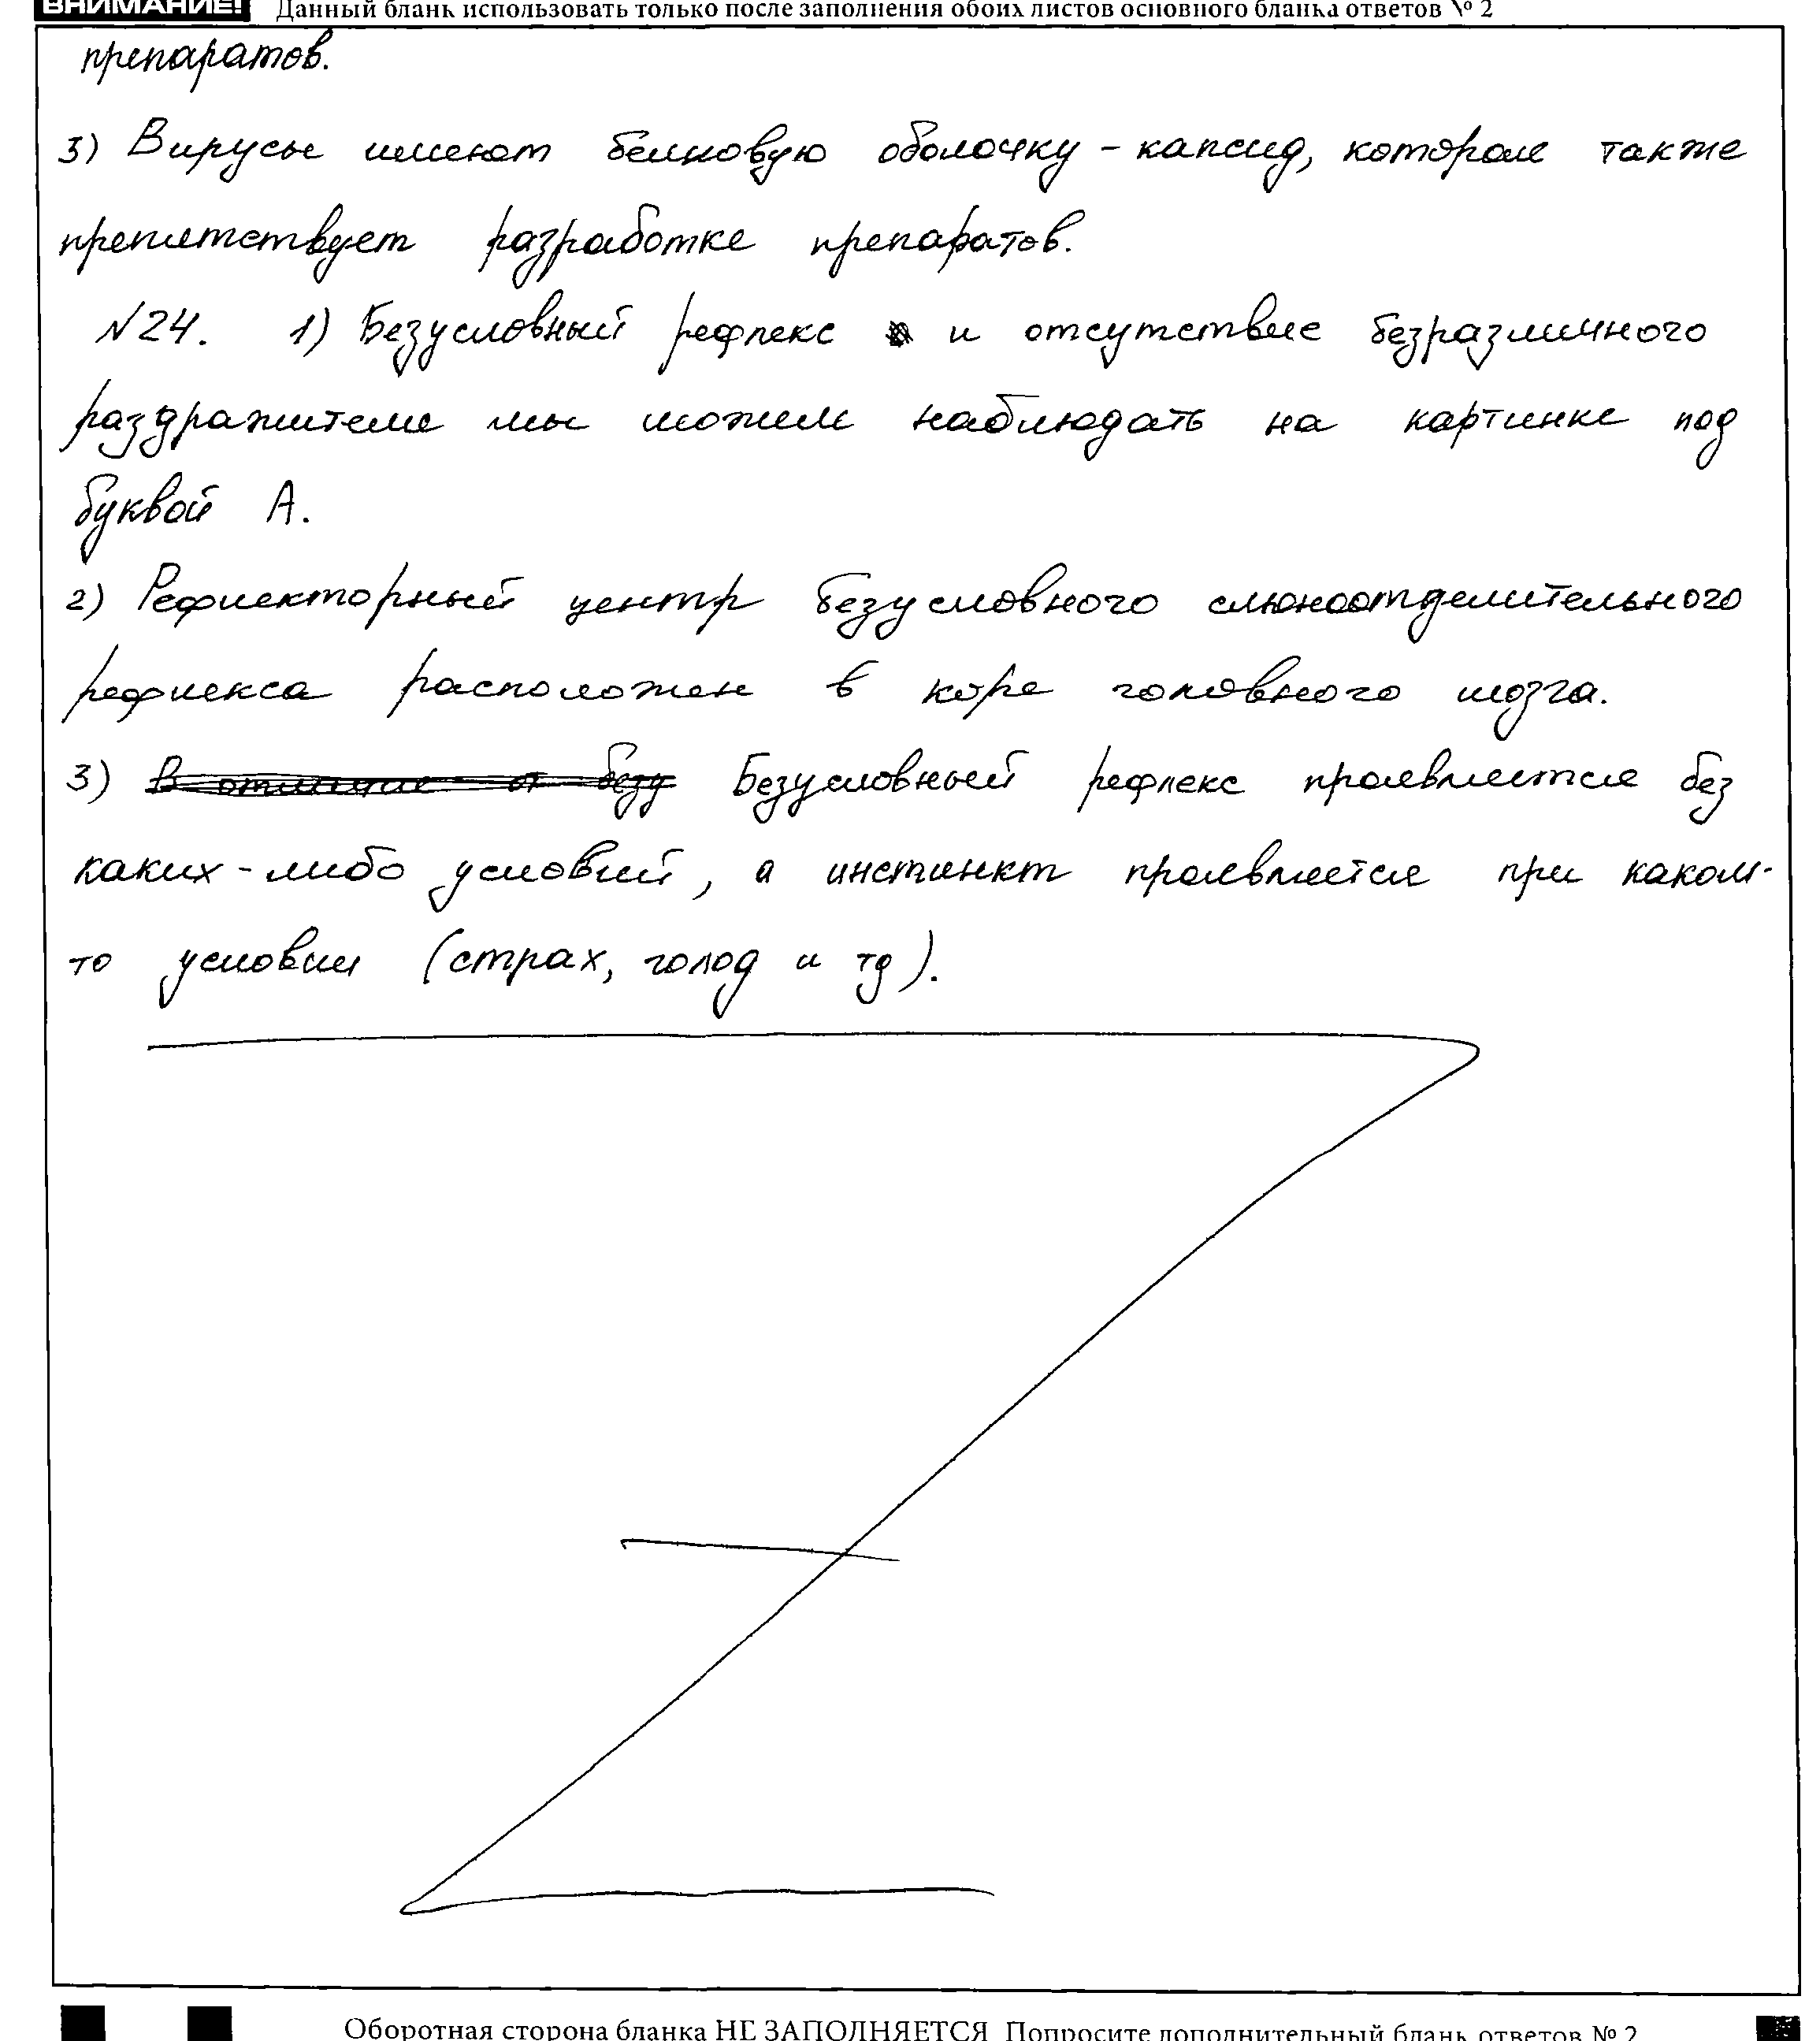 ВНИМАНИЕ! Данный бланк использовать только после заполнения обоих листов основного бланка ответов № 2
препаратов.
3) Вирусы имеют белковую оболочку - капсид, которые также
препятствует разработке препаратов.
№24. 1) Безусловный рефлекс и отсутствие безразличного
раздражителя мы можем наблюдать на картинке под
буквой А.
2) Рефлекторный центр безусловного слюноотделительного
рефлекса расположен в коре головного мозга.
3) В отличие от безу Безусловный рефлекс проявляется без
каких-либо условий, а инстинкт проявляется при каком-
то условии (страх, голод и тд).
Оборотная сторона бланка НЕ ЗАПОЛНЯЕТСЯ Попросите дополнительный бланк ответов № 2